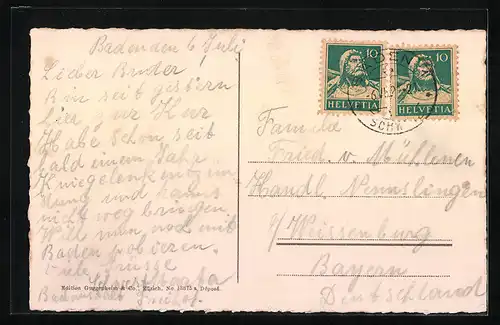 Baden den 6 Juli
Lieber Bruder!
Bin seit gestern
hier zur Kur
Habe schon seit
bald einem Jahr
Kniegelenkentzün
dung und kanns
nicht weg bringen
Will nun mal mit
Baden probieren.
Viele Grüsse
10 HELVETIA
10 HELVETIA
BADEN
Fried. v. Mühlenen
Handl. Nennslingen
b/ Weissenburg
Bayern
Deutschland
Edition Guggenheim & Co., Zürich, No. Déposé.